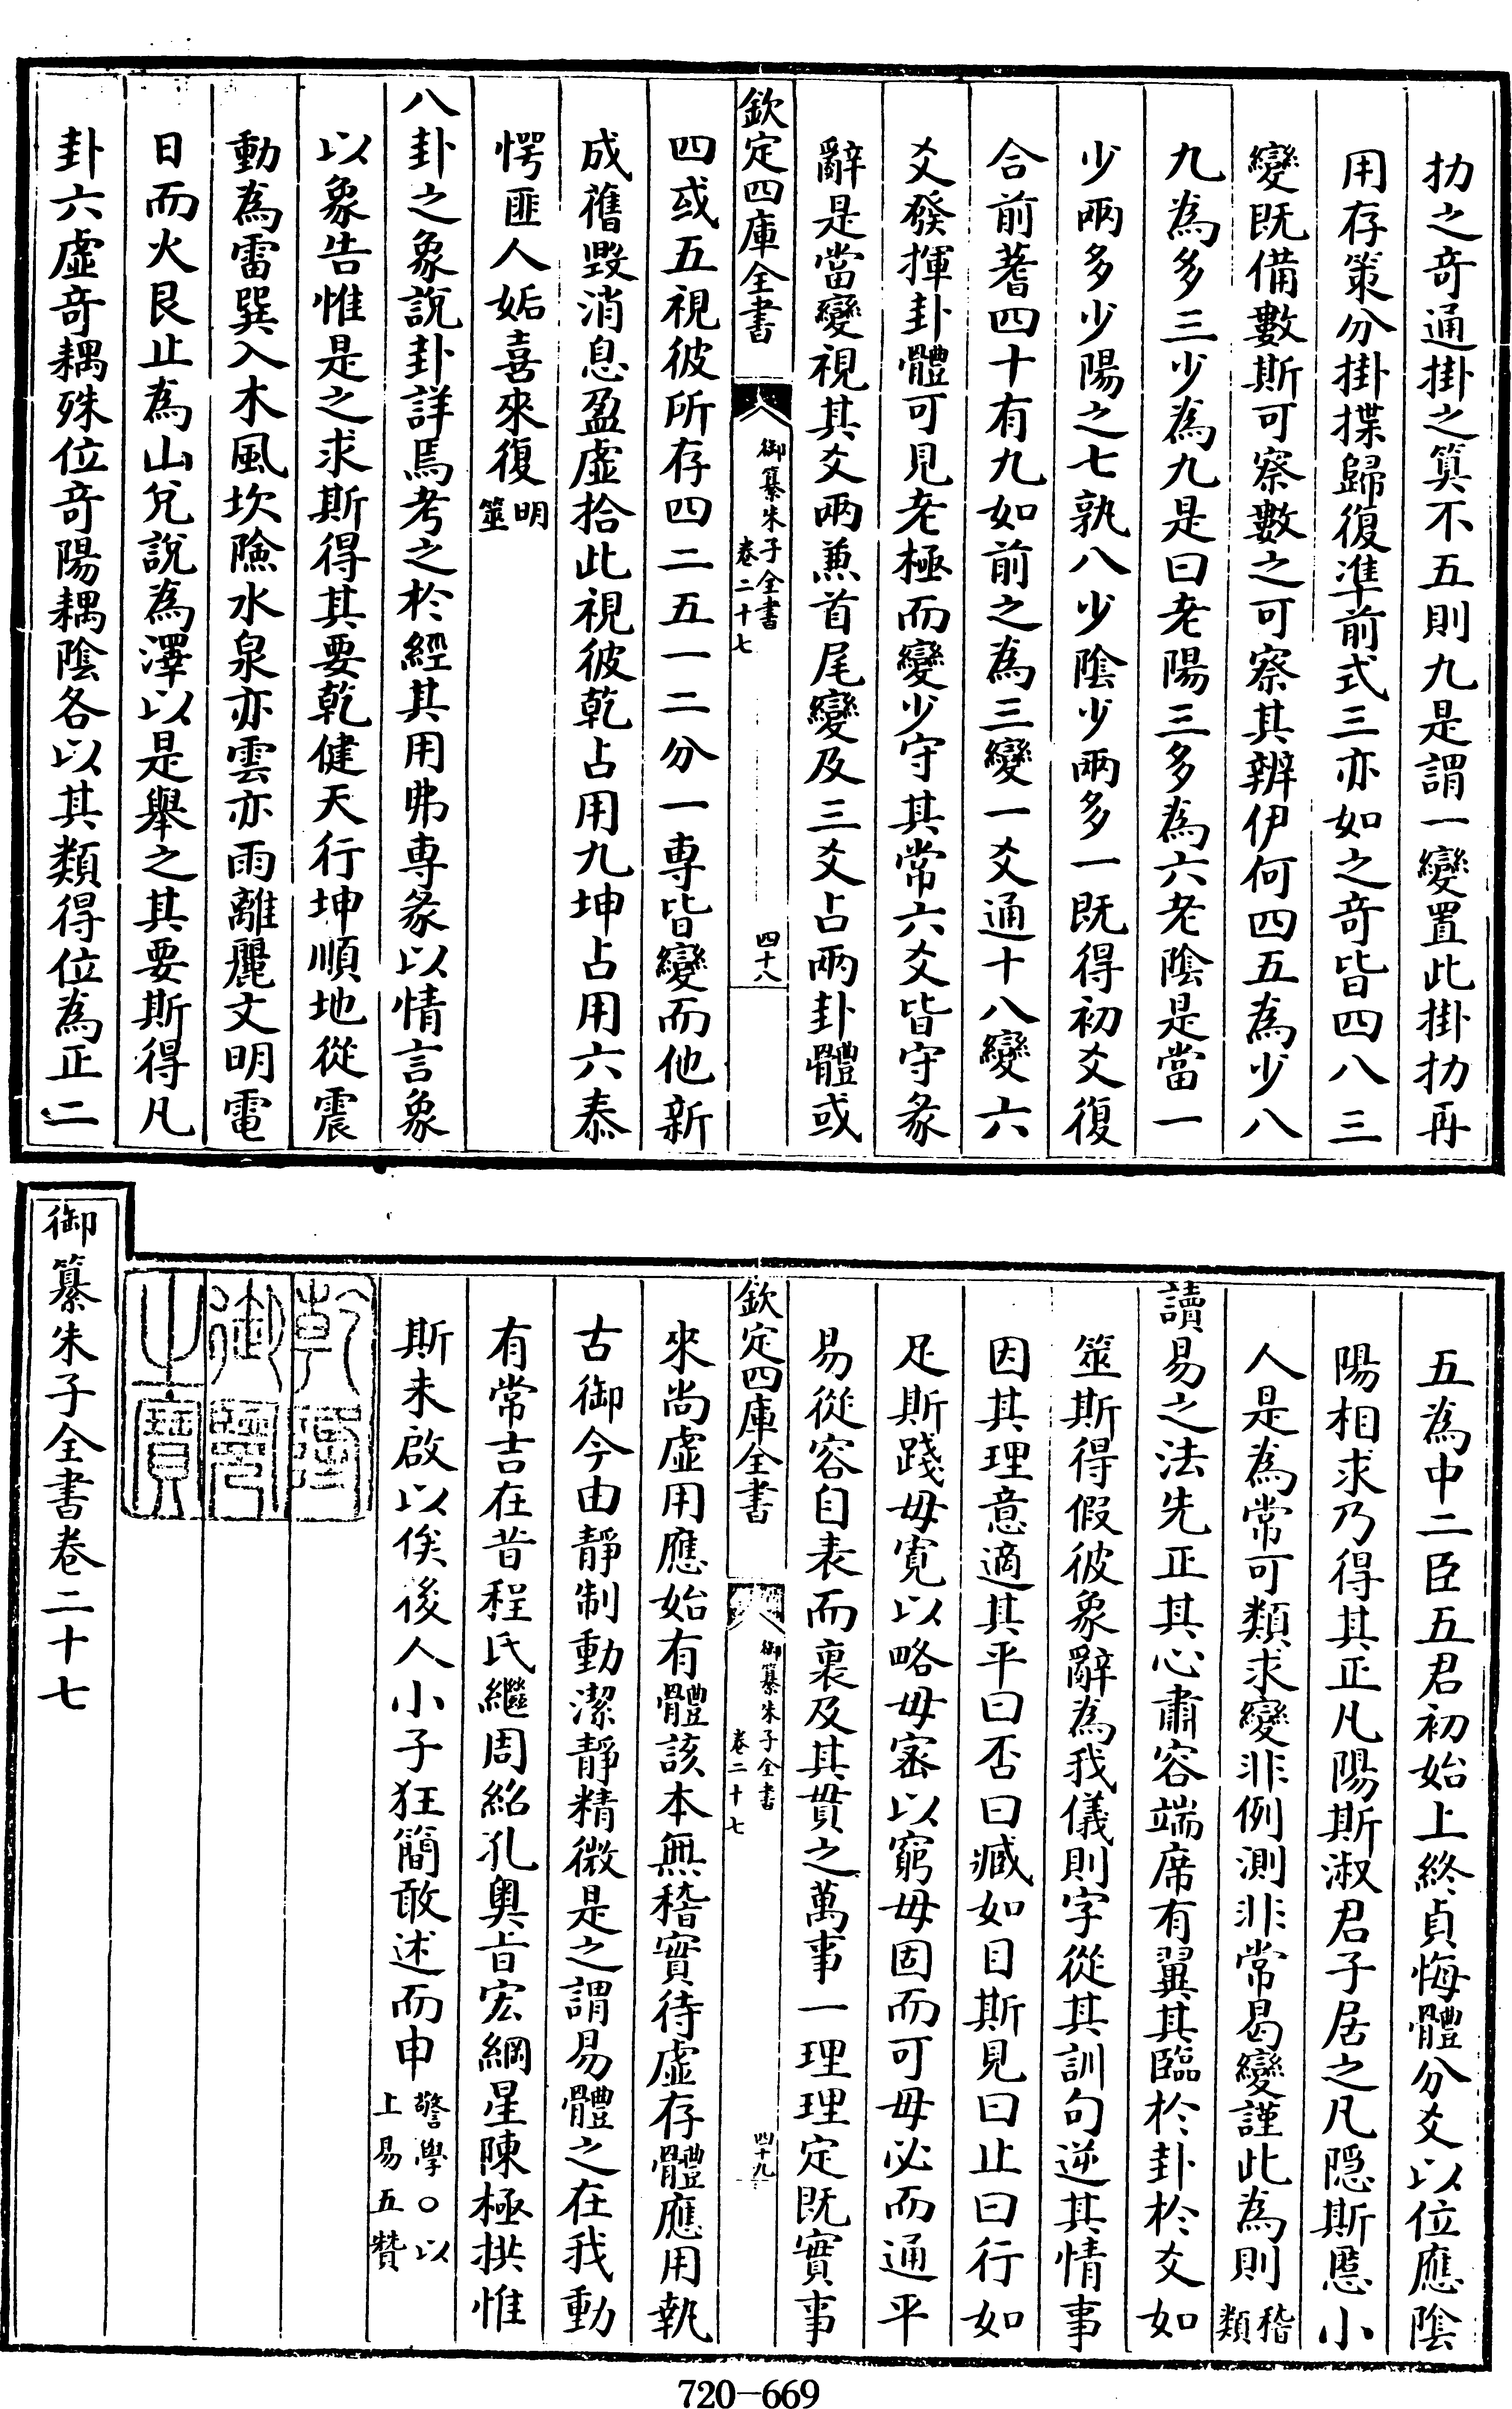 扐之奇通掛之算不五則九是謂一變置此掛扐再
用存策分掛揲歸復準前式三亦如之奇皆四八三
變既備數斯可察數之可察其辨伊何四五為少八
九為多三少為九是曰老陽三多為六老陰是當一
少兩多少陽之七孰八少陰少兩多一既得初爻復
合前蓍四十有九如前之為三變一爻通十八變六
爻發揮卦體可見老極而變少守其常六爻皆守彖
辭是當變視其爻兩兼首尾變及三爻占兩卦體或
欽定四庫全書
御纂朱子全書
卷二十七
四十八
四或五視彼所存四二五一二分一專皆變而他新
成舊毀消息盈虛拾此視彼乾占用九坤占用六泰
愕匪人姤喜來復明筮
八卦之象說卦詳焉考之於經其用弗專彖以情言象
以象告惟是之求斯得其要乾健天行坤順地從震
動為雷巽入木風坎險水泉亦雲亦雨離麗文明電
日而火艮止為山兌說為澤以是舉之其要斯得凡
卦六虛奇耦殊位奇陽耦陰各以其類得位為正二
五為中二臣五君初始上終貞悔體分爻以位應陰
陽相求乃得其正凡陽斯淑君子居之凡隱斯慝小
人是為常可類求變非例測非常曷變謹此為則稽類
讀易之法先正其心肅容端席有翼其臨於卦於爻如
筮斯得假彼象辭為我儀則字從其訓句逆其情事
因其理意適其平曰否曰臧如目斯見曰止曰行如
足斯踐毋寛以略毋密以窮毋固而可毋必而通平
易從容自表而裏及其貫之萬事一理理定既實事
欽定四庫全書
御纂朱子全書
卷二十七
四十九
來尚虛用應始有體該本無稽實待虛存體應用執
古御今由靜制動潔靜精微是之謂易體之在我動
有常吉在昔程氏繼周紹孔奥旨宏綱星陳極拱惟
斯未啟以俟後人小子狂簡敢述而申警學○以上易五贊
乾隆
御覽
之寶
御纂朱子全書卷二十七
720-669